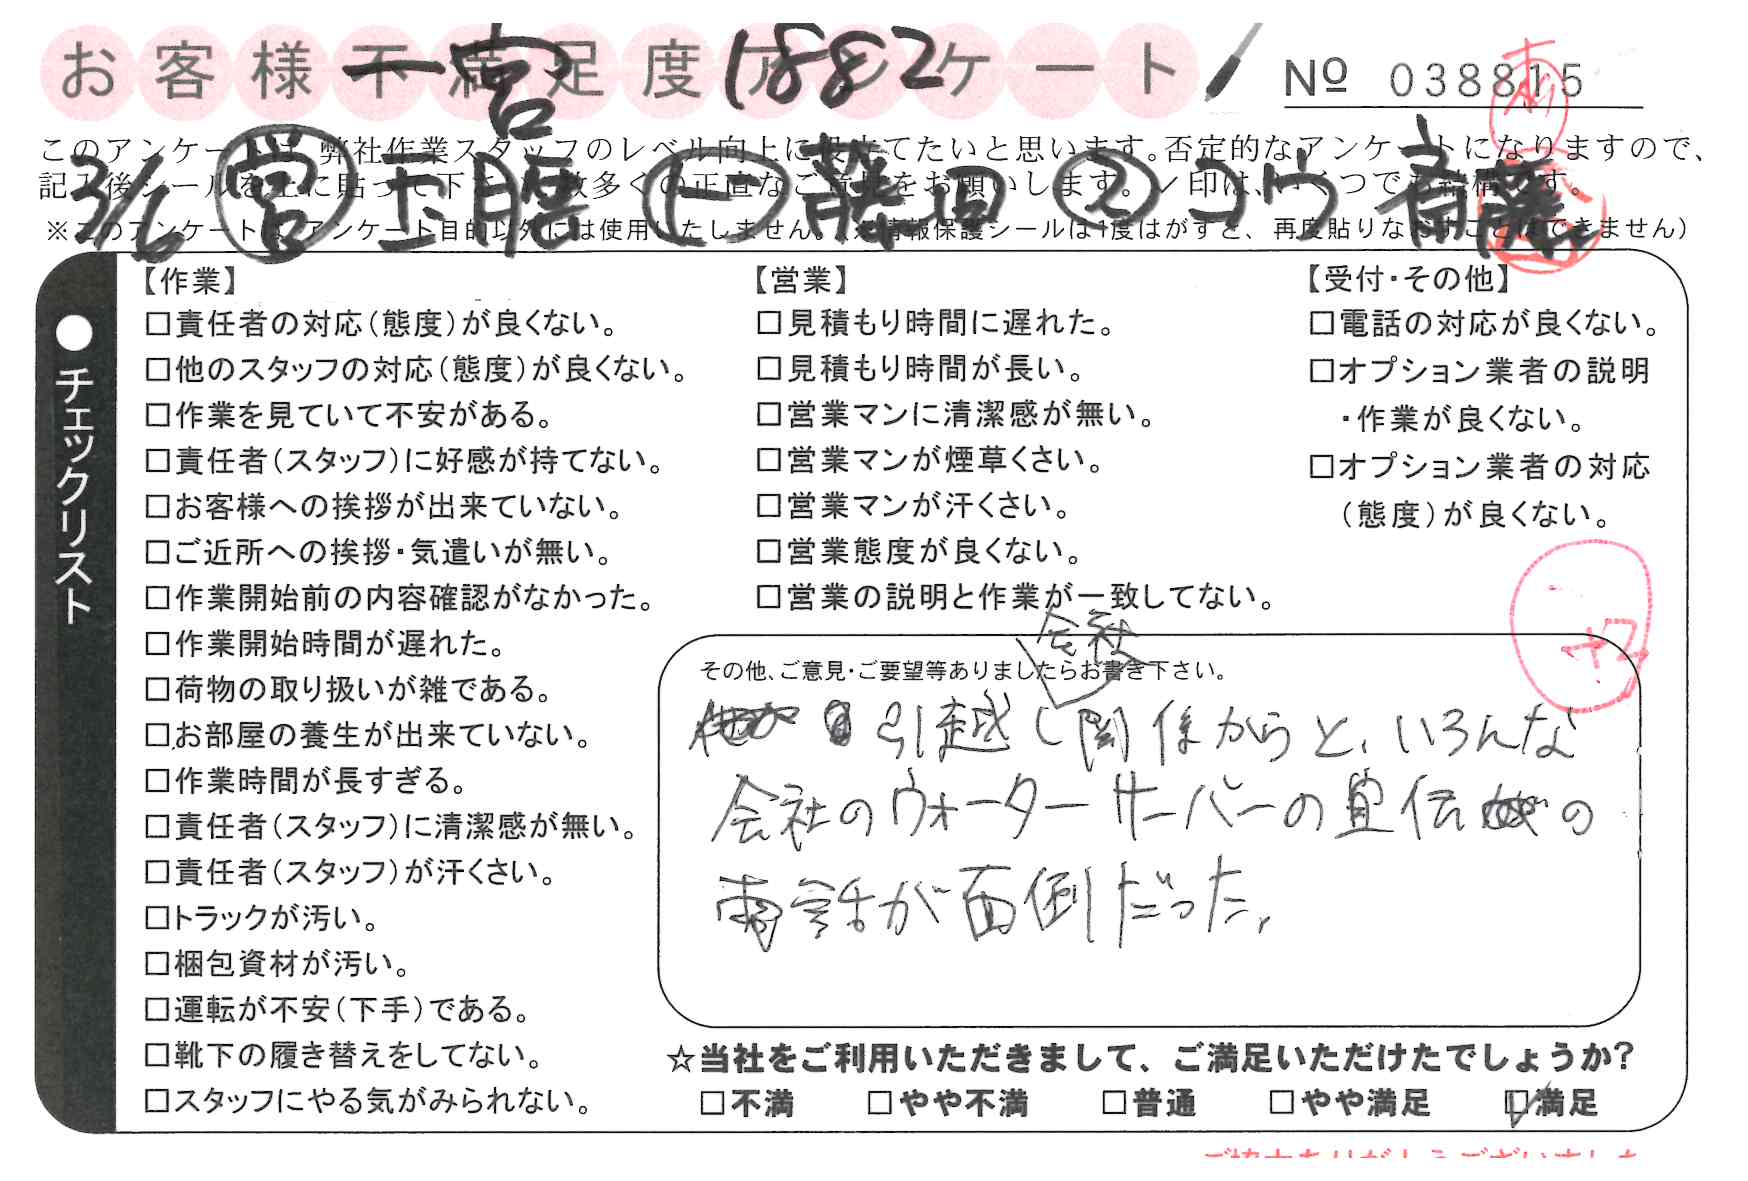 お客様不満足度アンケート
一宮 1882
№ 038815
このアンケートは、弊社作業スタッフのレベル向上に役立てたいと思います。否定的なアンケートになりますので、
記入後シールを上に貼って下さい。数多くの正直なご意見をお願いします。✓印は、いくつでも結構です。
※このアンケートは、アンケート目的以外には使用いたしません。(※情報保護シールは1度はがすと、再度貼りなおすことはできません)
3/6 営 玉腰 コウ 斉藤
●チェックリスト
【作業】
□責任者の対応(態度)が良くない。
□他のスタッフの対応(態度)が良くない。
□作業を見ていて不安がある。
□責任者(スタッフ)に好感が持てない。
□お客様への挨拶が出来ていない。
□ご近所への挨拶・気遣いが無い。
□作業開始前の内容確認がなかった。
□作業開始時間が遅れた。
□荷物の取り扱いが雑である。
□お部屋の養生が出来ていない。
□作業時間が長すぎる。
□責任者(スタッフ)に清潔感が無い。
□責任者(スタッフ)が汗くさい。
□トラックが汚い。
□梱包資材が汚い。
□運転が不安(下手)である。
□靴下の履き替えをしてない。
□スタッフにやる気がみられない。
【営業】
□見積もり時間に遅れた。
□見積もり時間が長い。
□営業マンに清潔感が無い。
□営業マンが煙草くさい。
□営業マンが汗くさい。
□営業態度が良くない。
□営業の説明と作業が一致してない。
【受付・その他】
□電話の対応が良くない。
□オプション業者の説明
・作業が良くない。
□オプション業者の対応
(態度)が良くない。
その他、ご意見・ご要望等ありましたらお書き下さい。
会社
引越し関係からと、いろんな
会社のウォーターサーバーの宣伝の
電話が面倒だった。
☆当社をご利用いただきまして、ご満足いただけたでしょうか?
□不満 □やや不満 □普通 □やや満足 ☑満足
ご協力ありがとうございました